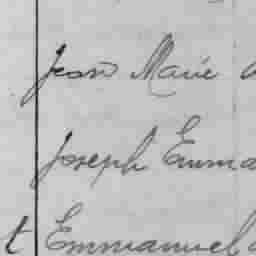 Jean Marie
Joseph Emma
t Emmanuel